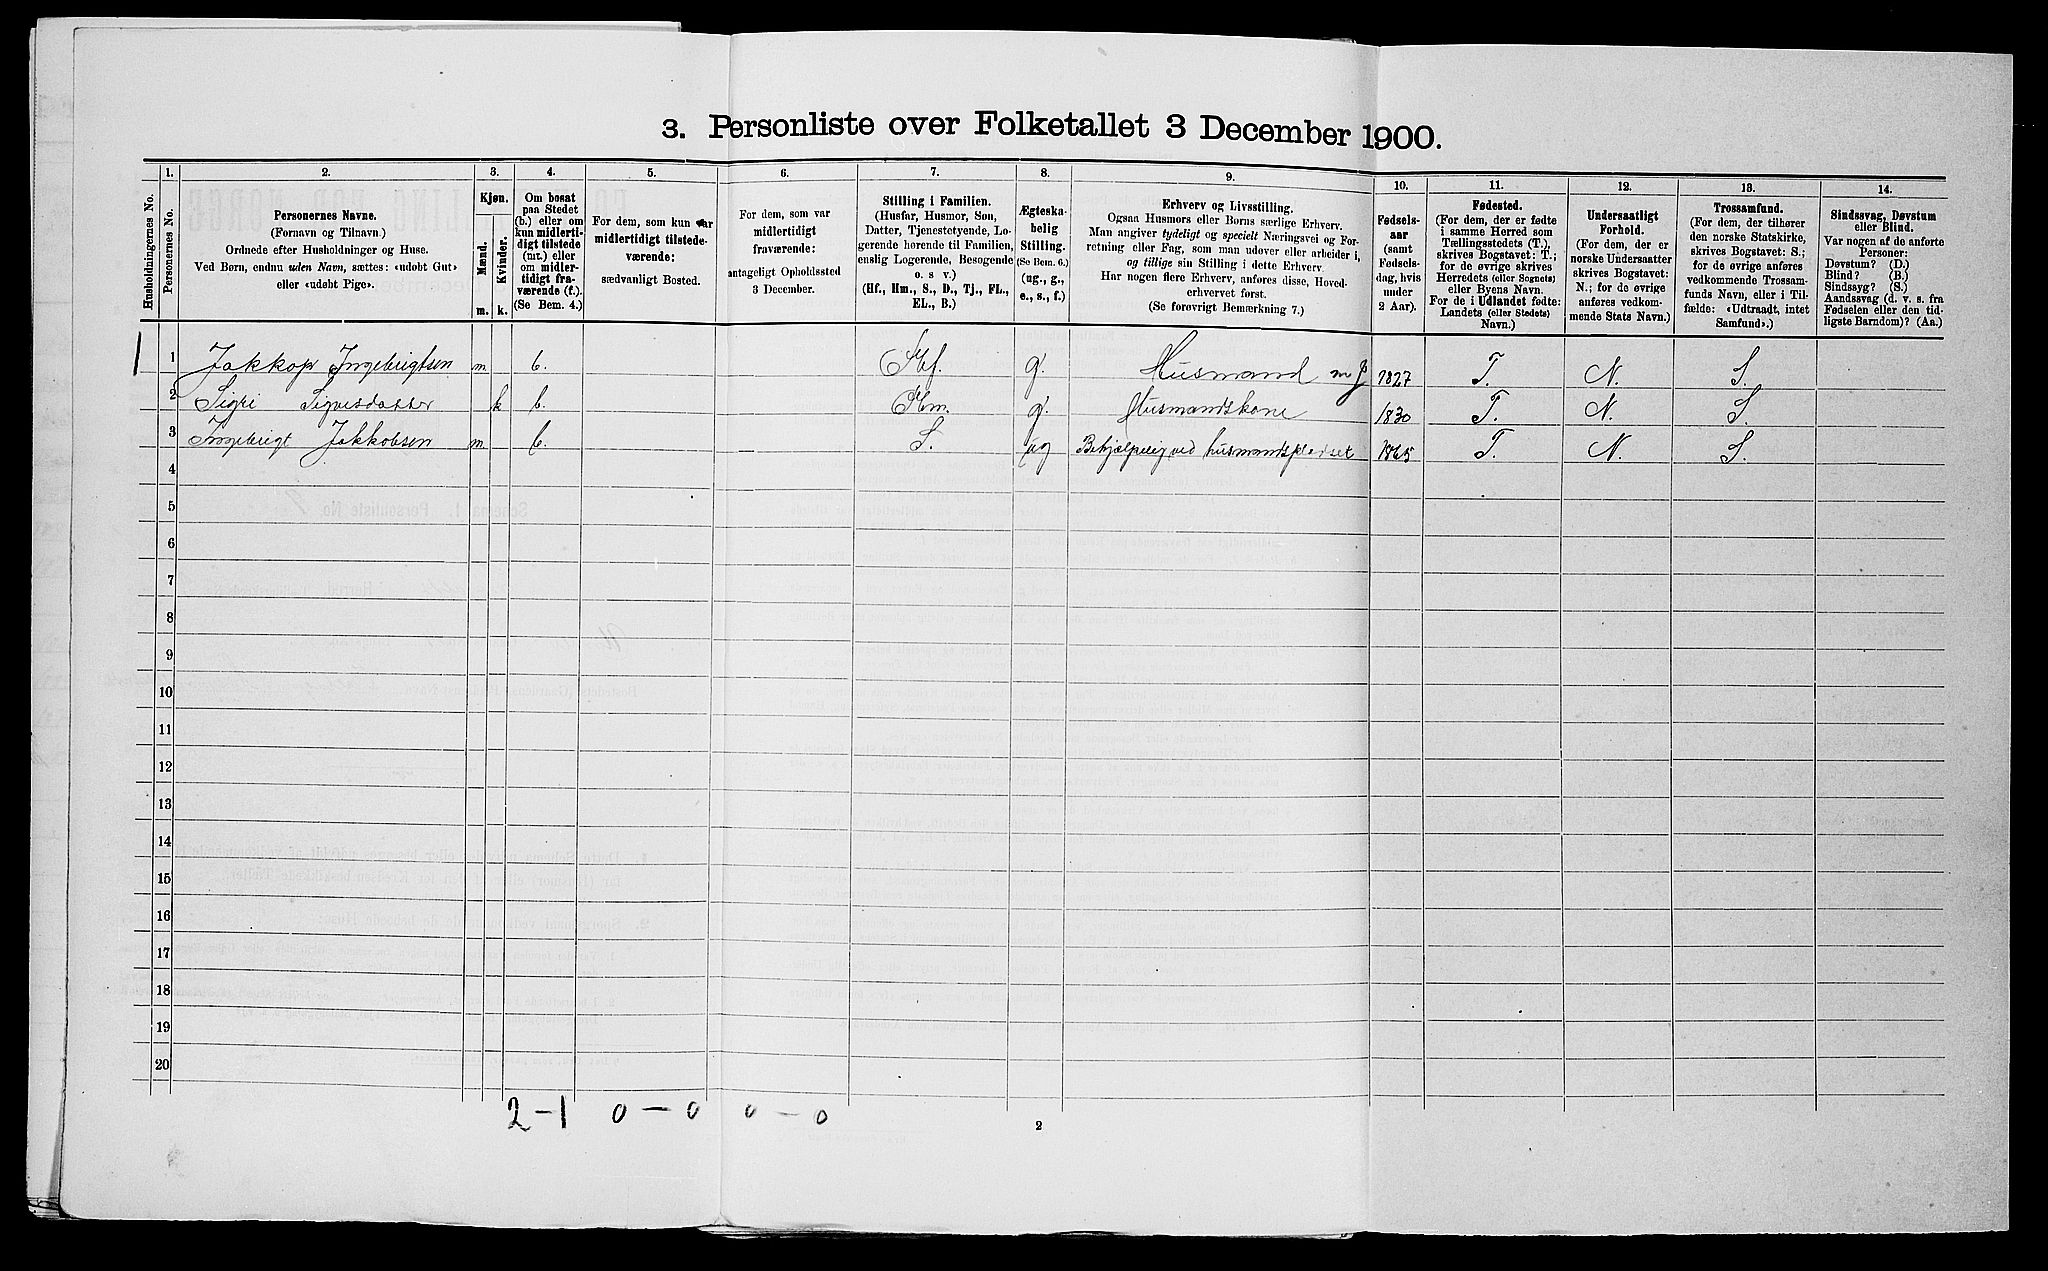 3. Personliste over Folketallet 3 December 1900.
Husholdningernes No.
1.
Personernes No.
2.
Personernes Navne.
(Fornavn og Tilnavn.)
Ordnede efter Husholdninger og Huse.
Ved Børn, endnu uden Navn, sættes: «udøbt Gut»
eller «udøbt Pige».
3.
Kjøn.
Mænd.
Kvinder.
m. k.
4.
Om bosat
paa Stedet
(b.) eller om
kun midlerti-
digt tilstede
(mt.) eller
om midler-
tidigt fra-
værende (f.).
(Se Bem. 4.)
5.
For dem, som kun var
midlertidigt tilstede-
værende:
sædvanligt Bosted.
6.
For dem, som var
midlertidigt
fraværende:
antageligt Opholdssted
3 December.
7.
Stilling i Familien.
(Husfar, Husmor, Søn,
Datter, Tjenestetyende, Lo-
gerende hørende til Familien,
enslig Logerende, Besøgende
o. s v.)
(Hf., Hm., S., D., Tj., FL.,
EL., B.)
8.
Ægteska-
belig
Stilling.
(Se Bem. 6.)
(ug., g.,
e., s., f.)
9.
Erhverv og Livsstilling.
Ogsaa Husmors eller Børns særlige Erhverv.
Man angiver tydeligt og specielt Næringsvei og For-
retning eller Fag, som man udøver eller arbeider i,
og tillige sin Stilling i dette Erhverv.
Har nogen flere Erhverv, anføres disse, Hoved-
erhvervet først.
(Se forøvrigt Bemærkning 7.)
10.
Fødsels-
aar
(samt
Fødsels-
dag, hvis
under
2 Aar).
11.
Fødested.
(For dem, der er fødte
i samme Herred som
Tællingsstedets (T.),
skrives Bogstavet: T.;
for de øvrige skrives
Herredets (eller Sognets)
eller Byens Navn.
For de i Udlandet fødte:
Landets (eller Stedets)
Navn.)
12.
Undersaatligt
Forhold.
(For dem, der er
norske Undersaatter
skrives Bogstavet:
N.; for de øvrige
anføres vedkom-
mende Stats Navn.)
13.
Trossamfund.
(For dem, der tilhører
den norske Statskirke,
skrives Bogstavet: S.;
for de øvrige anføres
vedkommende Trossam-
funds Navn, eller i Til-
fælde: «Udtraadt, intet
Samfund».)
14.
Sindssvag, Døvstum
eller Blind.
Var nogen af de anførte
Personer:
Døvstum? (D.)
Blind? (B.)
Sindssyg? (S.)
Aandssvag (d. v. s. fra
Fødselen eller den tid-
ligste Barndom)? (Aa.)
1 1 Jakkop Ingebrigtsen m b. Hf. g. Husmand m J 1827 T. N. S.
2 Sigri Sigvesdatter k b. Hm. g. Husmandskone 1830 T. N. S.
3 Ingebrigt Jakkobsen m b. S. ug Behjælpelig ved husmandspladset 1865 T. N. S.
4
5
6
7
8
9
10
11
12
13
14
15
16
17
18
19
20
2-1 0-0 0-0
2